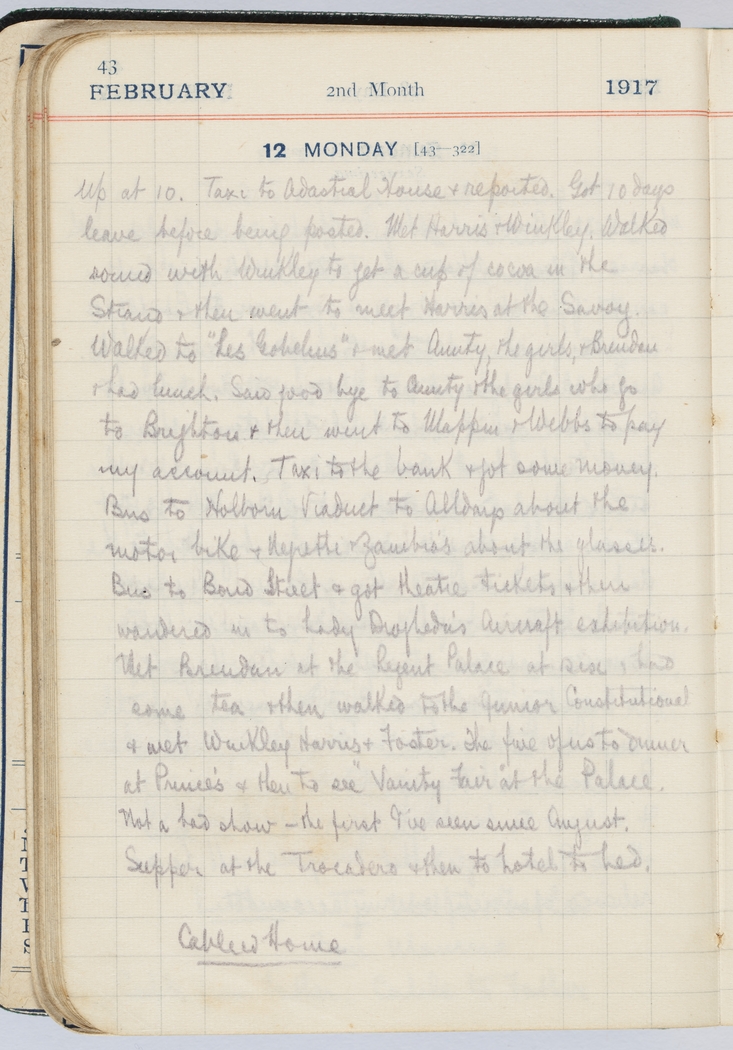 43
FEBRUARY 2nd Month 1917
12 MONDAY [43—322]
Up at 10. Taxi to Adastral House & reported. Got 10 days
leave before being posted. Met Harris & Winkley. Walked
round with Winkley to get a cup of cocoa in the
Strand & then went to meet Harris at the Savoy.
Walked to "Les Gobelins" & met Aunty, the girls, & Brendan
& had lunch. Said good bye to Aunty & the girls who go
to Brighton & then went to Mappin & Webbs to pay
my account. Taxi to the bank & got some money.
Bus to Holborn Viaduct to Alldays about the
motor bike & & Zambra's about the glasses.
Bus to Bond Street & got theatre tickets & then
wandered in to Lady Drogheda's Aircraft exhibition.
Met Brendan at the Regent Palace at six & had
some tea & then walked to the Junior Constitutional
& met Winkley Harris & Foster. The five of us to dinner
at Prince's & then to see "Vanity Fair" at the Palace.
Not a bad show – the first I've seen since August.
Supper at the Trocadero & then to hotel to bed.
Cabled Home